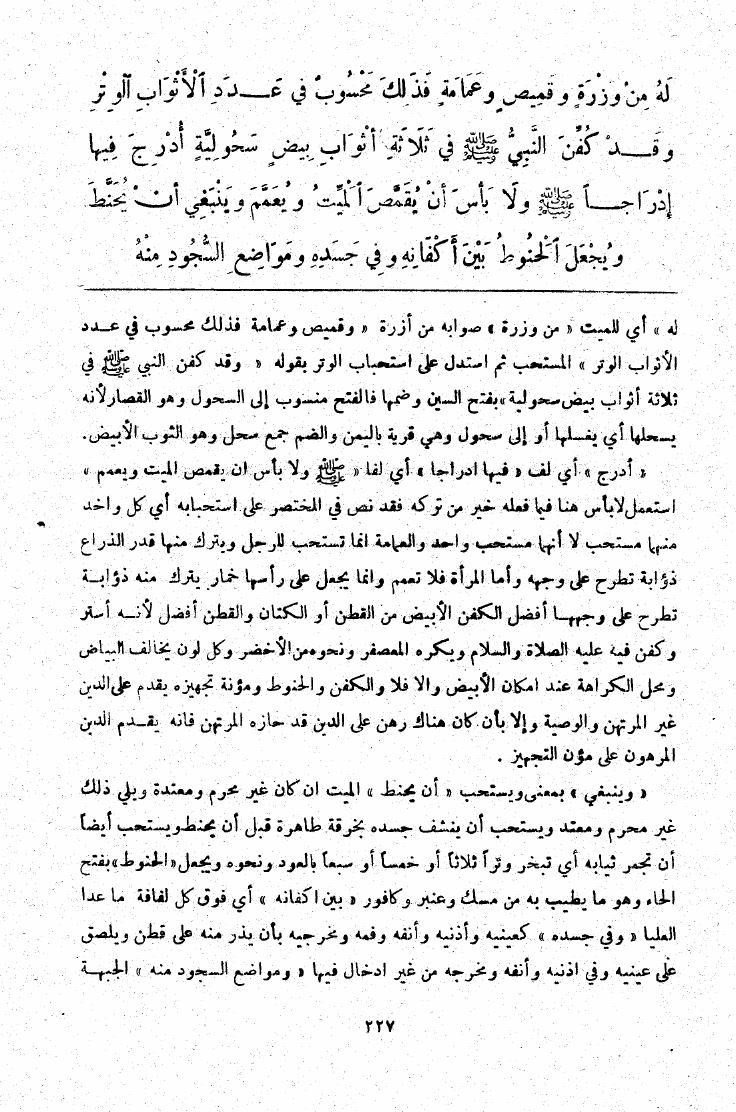 لَهُ مِنْ وِزْرَةٍ وَقَمِيصٍ وَعَمَامَةٍ فَذَلِكَ مَحْسُوبٌ فِي عَدَدِ ٱلْأَثْوَابِ ٱلْوِتْرِ
وَقَدْ كُفِّنَ النَّبِيُّ ﷺ فِي ثَلَاثَةِ أَثْوَابِ بِيضٍ سَحُولِيَّةٍ أُدْرِجَ فِيهَا
إِدْرَاجاً ﷺ وَلَا بَأْسَ أَنْ يُقَمَّصَ ٱلْمَيِّتُ وَيُعَمَّمَ وَيَنْبَغِي أَنْ يُحَنَّطَ
وَيُجْعَلَ ٱلْحَنُوطُ بَيْنَ أَكْفَانِهِ وَفِي جَسَدِهِ وَمَوَاضِعِ السُّجُودِ مِنْهُ
له » أي للميت « من وزرة » صوابه من أزرة « وقميص وعمامة فذلك محسوب في عدد
الأثواب الوتر » المستحب ثم استدل على استحباب الوتر بقوله « وقد كفن النبي ﷺ في
ثلاثة أثواب بيض سحولية » بفتح السين وضمها فالفتح منسوب إلى السحول وهو القصار لأنه
يسحلها أي يغسلها أو إلى سحول وهي قرية باليمن والضم جمع سحل وهو الثوب الأبيض.
« أدرج » أي لف « فيها ادراجا » أي لفا « ﷺ ولا بأس ان يقمص الميت ويعمم »
استعمل لا بأس هنا فيما فعله خير من تركه فقد نص في المختصر على استحبابه أي كل واحد
منها مستحب لا أنها مستحب واحد والعمامة انما تستحب للرجل ويترك منها قدر الذراع
ذؤابة تطرح على وجهه وأما المرأة فلا تعمم وانما يجعل على رأسها خمار يترك منه ذؤابة
تطرح على وجهها أفضل الكفن الأبيض من القطن أو الكتان والقطن أفضل لأنه أستر
وكفن فيه عليه الصلاة والسلام ويكره المعصفر ونحوه من الأخضر وكل لون يخالف البياض
ومحل الكراهة عند امكان الأبيض والا فلا والكفن والحنوط ومؤنة تجهيزه يقدم على الدين
غير المرتهن والوصية وإلا بأن كان هناك رهن على الدين قد حازه المرتهن فانه يقدم الدين
المرهون على مؤن التجهيز .
« وينبغي » بمعنى ويستحب « أن يحنط » الميت ان كان غير محرم ومعتدة ويلي ذلك
غير محرم ومعتد ويستحب أن ينشف جسده بخرقة طاهرة قبل أن يحنط ويستحب أيضاً
أن تجمر ثيابه أي تبخر وتراً ثلاثاً أو خمساً أو سبعاً بالعود ونحوه ويجعل « الحنوط » بفتح
الحاء وهو ما يطيب به من مسك وعنبر وكافور « بين اكفانه » أي فوق كل لفافة ما عدا
العليا « وفي جسده » كعينيه وأذنيه وأنفه وفمه ومخرجيه بأن يذر منه على قطن ويلصق
على عينيه وفي اذنيه وأنفه ومخرجه من غير ادخال فيها « ومواضع السجود منه » الجبهة
٢٢٧